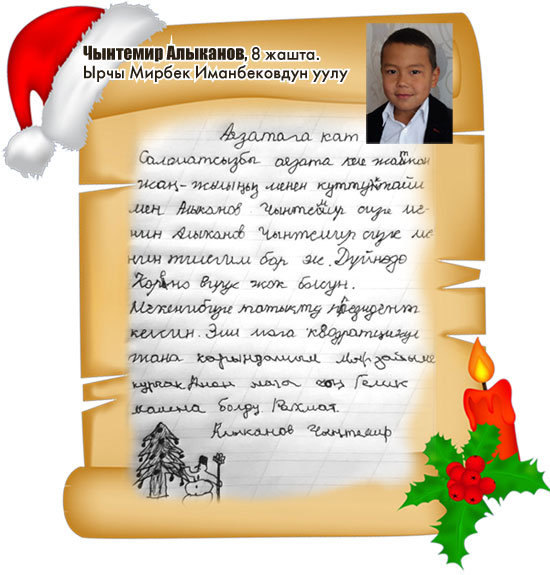 Чынтемир Алыканов, 8 жашта.
Ырчы Мирбек Иманбековдун уулу
Аязатага кат
Саламатсызбы аязата келе жаткан
жаң-жылыңыз менен куттуктайм
мен Алыканов Чынтемир сизге ме-
нин Алыканов Чынтемир сизге ме
нин тилегим бар эле. Дүйнөдө
вирус жок болсун.
Мекенибизге татыктуу президент
келсин. Эми мага квадратцикл
жана карындашыма
куурчак Апам мага чоң Гелик
машина болду. Рахмат.
Алыканов Чынтемир